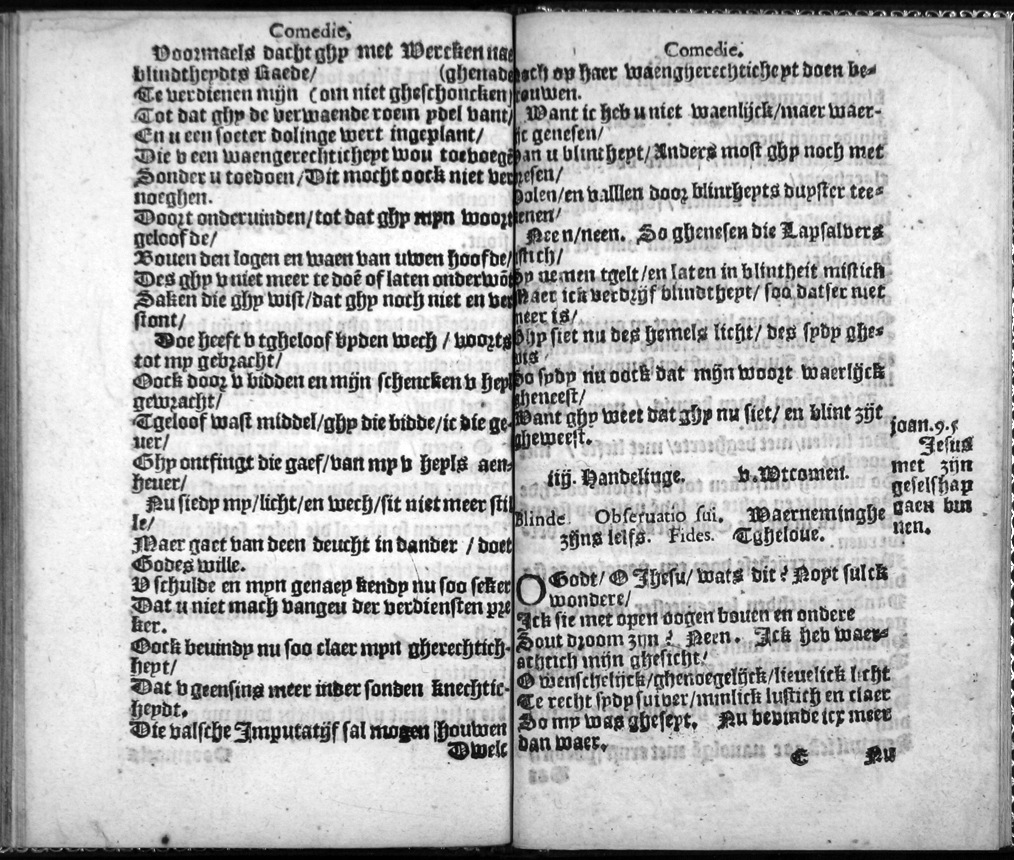 Comedie,
Voormaels dacht ghy met Wercken nae
blindtheydts Raede/ (ghenade
Te verdienen mijn (om niet gheschoncken)
Tot dat ghy de verwaende roem ydel vant/
En u een soeter dolinge wert ingeplant/
Die v een waengerechticheyt wou toevoegẽ
Sonder u toedoen/Dit mocht oock niet ver
noeghen.
Doort onderuinden/tot dat ghy mpn woort
geloofde/
Bouen den logen en waen van uwen hoofde/
Des ghy v niet meer te doẽ of laten onderwõt
Saken die ghy wist/dat ghy noch niet en ver
stont/
Doe heeft v tgheloof vpden wech / voorts
tot my gebracht/
Oock door v bidden en mijn schencken v heyl
gewracht/
Tgeloof wast middel/ghy die bidde/ic die ge-
uer/
Ghy ontfingt die gaef/van my v heyls aen-
heuer/
Nu siedy my/licht/en wech/sit niet meer stil
le/
Maer gaet van deen deucht in dander / doet
Godes wille.
V schulde en mpn genaey kendy nu soo seker
Dat u niet mach vangeu der verdiensten pre
ker.
Oock beuindy nu soo claer mpn gherechtich-
heyt/
Dat v geensins meer inder sonden knechtic-
heydt.
Die valsche Imputatijf sal mogen houwen
Dwelc
Comedie.
och op haer waengherechticheyt doen be-
touwen.
Want ic heb u niet waenlijck/maer waer-
ijc genesen/
Van u blintheyt/Anders most ghy noch met
resen/
Dolen/en valllen door blintheyts duyster tee-
enen/
Neen/neen. So ghenesen die Lapsalvers
istich/
Sy nemen tgelt/en laten in blintheit mistick
Maer ick verdrijf blindtheyt/ soo datser niet
meer is/
Ghy siet nu des hemels licht/ des sydy ghe-
wis/
So sydy nu oock dat mijn woort waerlijck
gheneest/
Want ghy weet dat ghy nu siet/ en blint zijt
gheweest.
joan. 9. 5
Jesus
met zijn
geselschap
gaen bin
nen.
iiij. Handelinge. v. Wtcomen.
Blinde Obseruatio sui. Waerneminghe
zijns selfs. Fides. Tgheloue.
O Godt/ O Jhesu/ wats dit? Noyt sulck
wondere/
Ick sie met open oogen bouen en ondere
Sout droom zijn? Neen. Ick heb waer-
achtich mijn ghesicht/
O wenschelijck/ghenoegelijck/lieuelick licht
Te recht sydy suiver/minlick lustich en claer
So my was gheseyt. Nu bevinde icx meer
dan waer.
C Nu